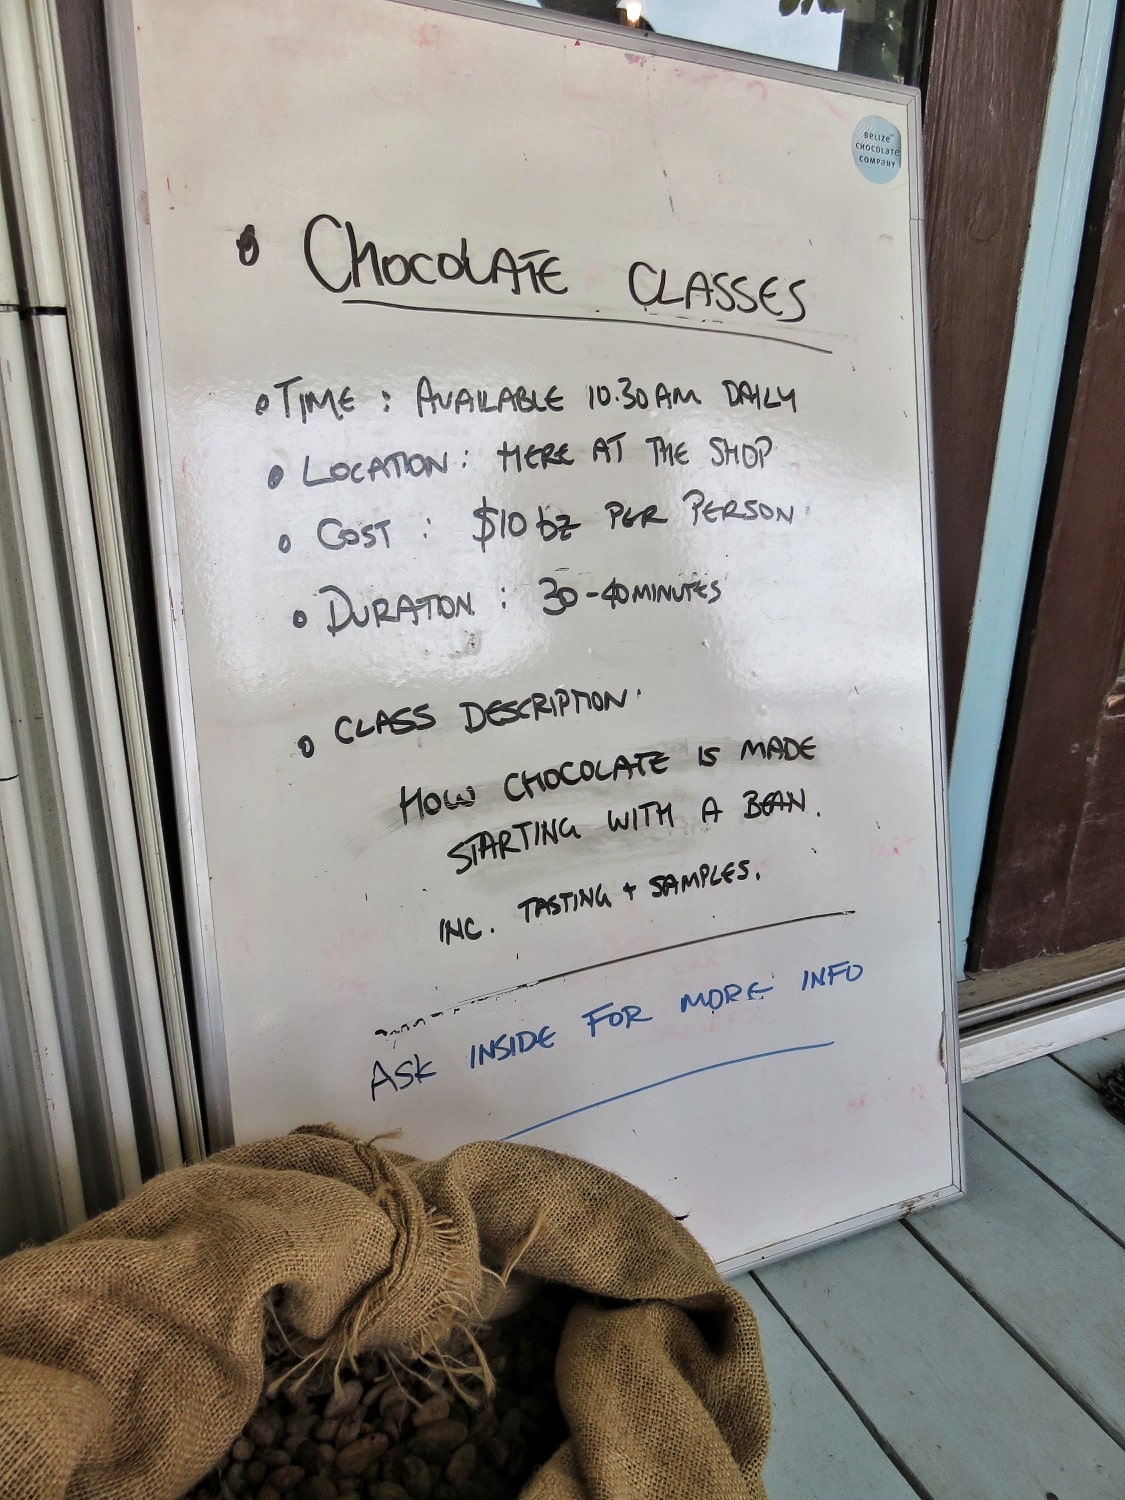 BELIZE™
CHOCOLATE
COMPANY
• CHOCOLATE CLASSES
• TIME : AVAILABLE 10.30AM DAILY
• LOCATION : HERE AT THE SHOP
• COST : $10 bz PER PERSON
• DURATION : 30-40 MINUTES
• CLASS DESCRIPTION.
HOW CHOCOLATE IS MADE
STARTING WITH A BEAN.
INC. TASTING + SAMPLES.
ASK INSIDE FOR MORE INFO